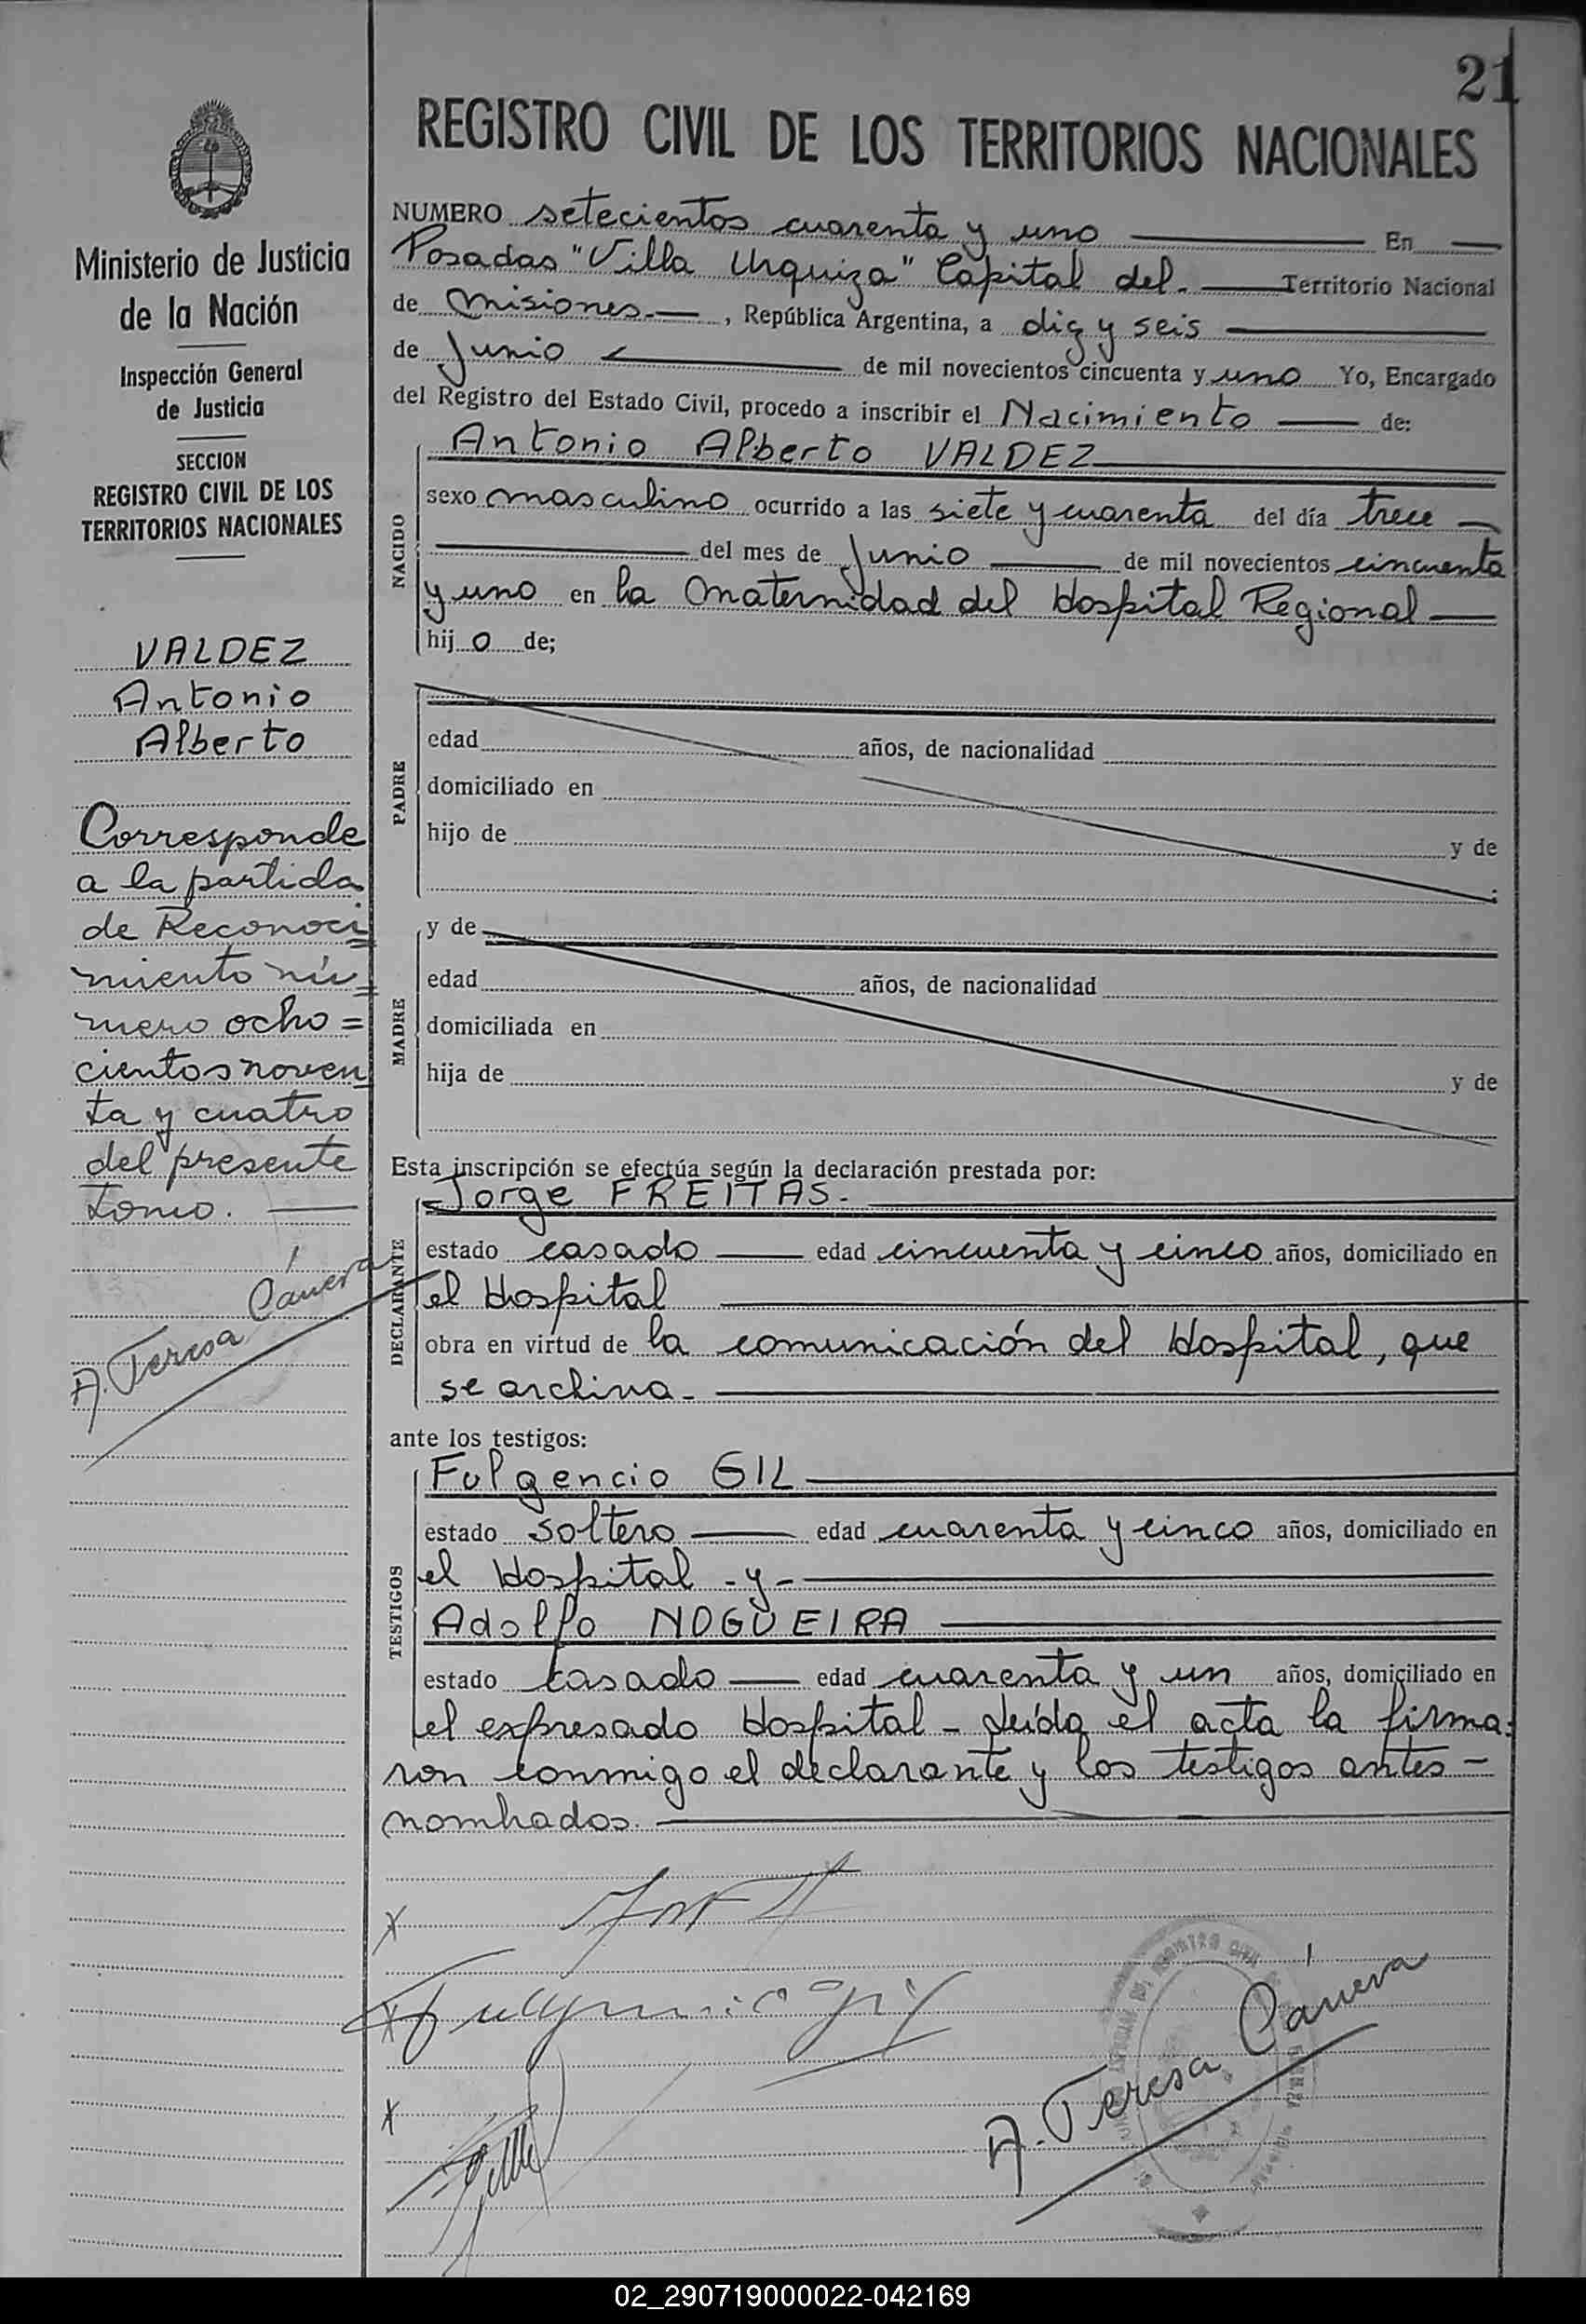 21
REGISTRO CIVIL DE LOS TERRITORIOS NACIONALES
Ministerio de Justicia
de la Nación
Inspección General
de Justicia
SECCION
REGISTRO CIVIL DE LOS
TERRITORIOS NACIONALES
VALDEZ
Antonio
Alberto
Corresponde
a la partida
de Reconoci=
miento nú=
mero ocho=
cientos noven=
ta y cuatro
del presente
tomo.
A. Teresa Cánera
NUMERO setecientos cuarenta y uno En
Posadas "Villa Urquiza" Capital del Territorio Nacional
de Misiones.-, República Argentina, a diez y seis
de Junio de mil novecientos cincuenta y uno Yo, Encargado
del Registro del Estado Civil, procedo a inscribir el Nacimiento de:
Antonio Alberto VALDEZ
NACIDO
sexo masculino ocurrido a las siete y cuarenta del día trece
del mes de Junio de mil novecientos cincuenta
y uno en la Maternidad del Hospital Regional
hij o de;
PADRE
edad años, de nacionalidad
domiciliado en
hijo de y de
MADRE
y de
edad años, de nacionalidad
domiciliada en
hija de y de
Esta inscripción se efectúa según la declaración prestada por:
Jorge FREITAS.-
DECLARANTE
estado casado edad cincuenta y cinco años, domiciliado en
el Hospital
obra en virtud de la comunicación del Hospital, que
se archiva-
ante los testigos:
Fulgencio GIL
TESTIGOS
estado soltero edad cuarenta y cinco años, domiciliado en
el Hospital -y-
Adolfo NOGUEIRA
estado casado edad cuarenta y un años, domiciliado en
el expresado Hospital - Leída el acta la firma=
ron conmigo el declarante y los testigos antes-
nombrados.
x
x Fulgencio Gil
x
A. Teresa Cánera
02_290719000022-042169